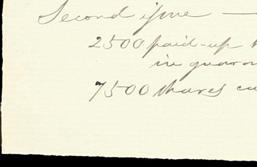 Second issue —
2500 paid-up
in
7500 shares